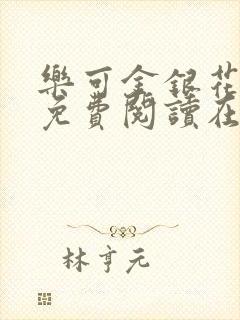 樂可金銀花
免費閱讀在
林亨元